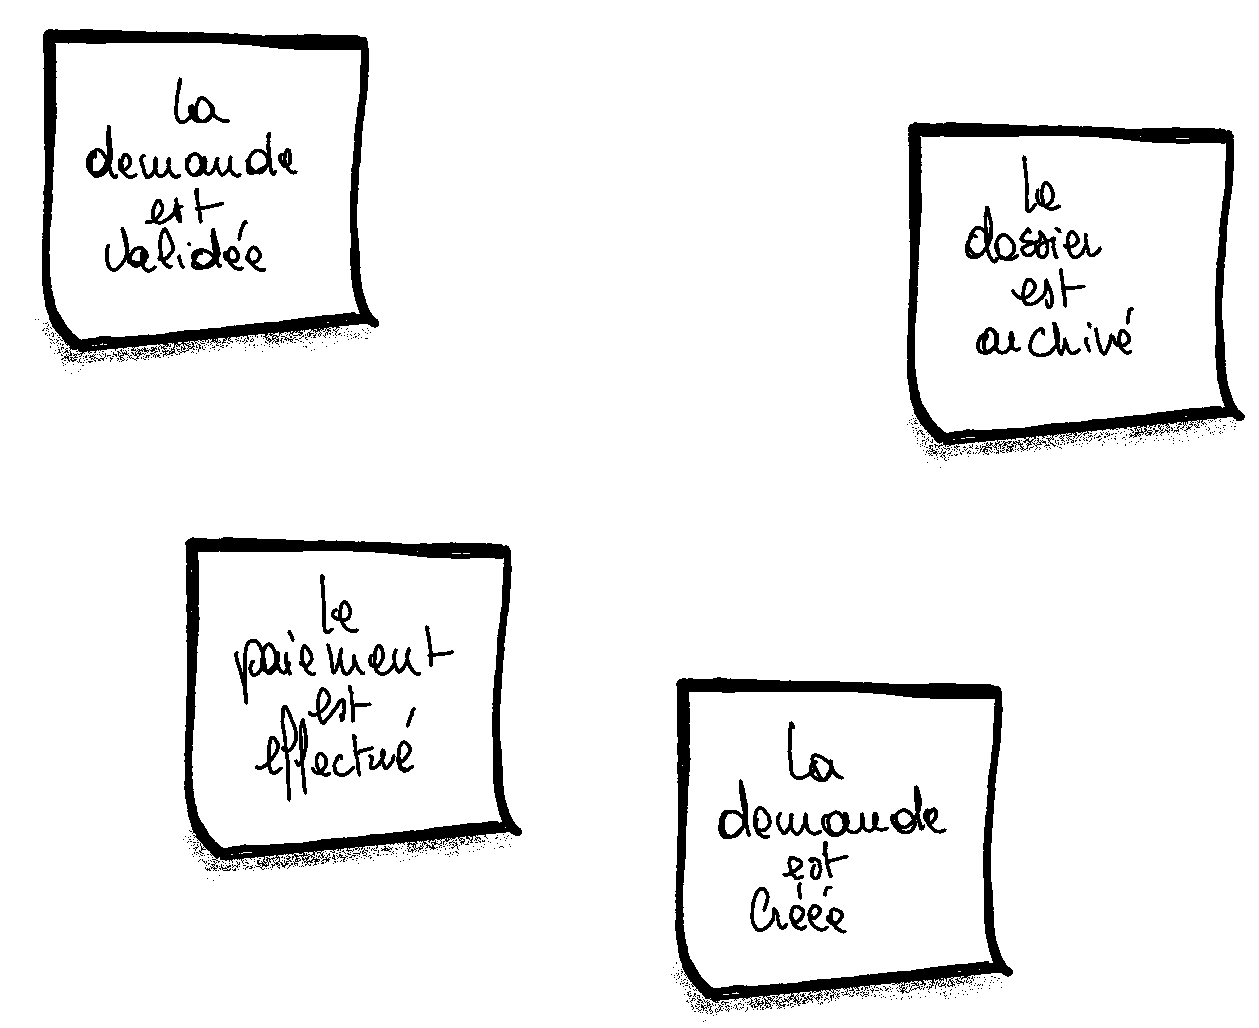 La
demande
est
validée
Le
dossier
est
archivé
Le
paiement
est
effectué
La
demande
est
créée